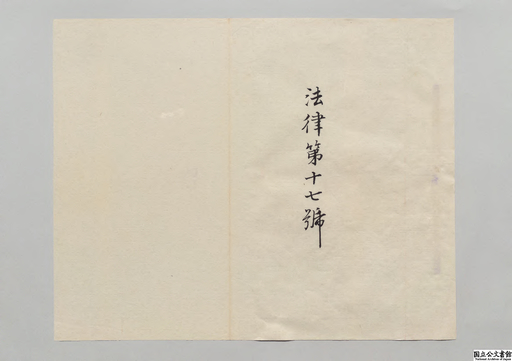 法律第十七號
国立公文書館
National Archives of Japan